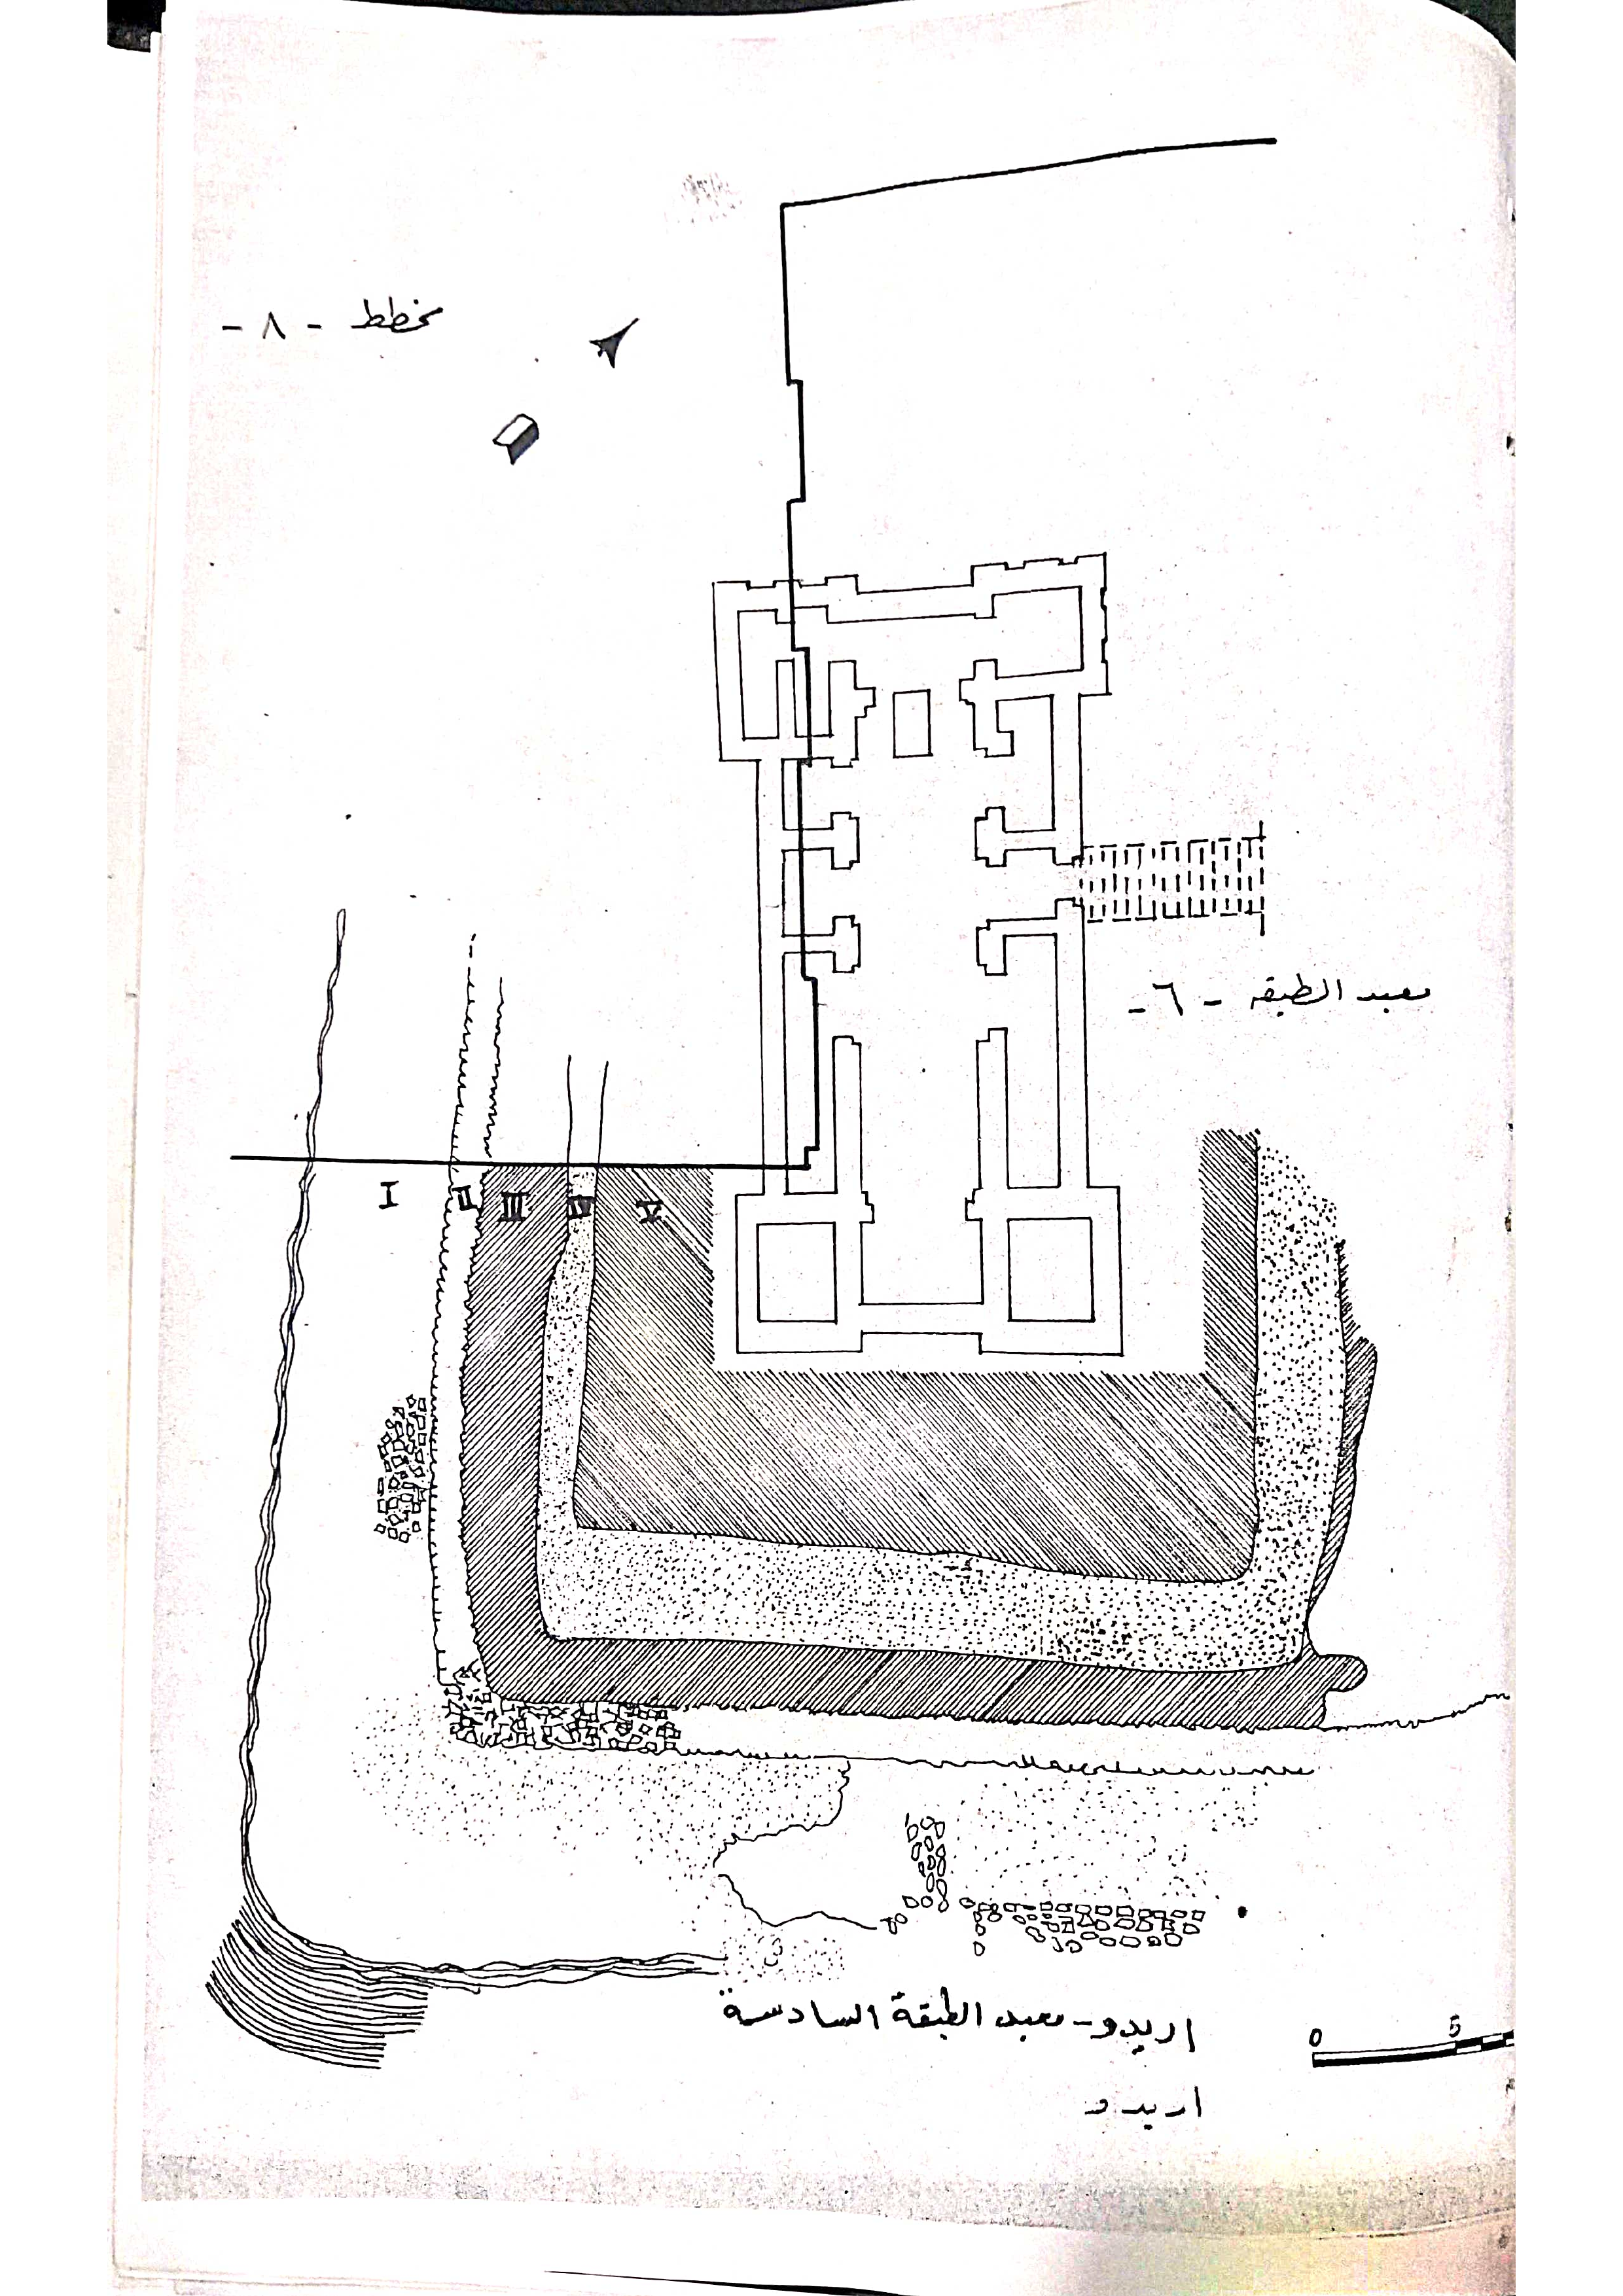 مخطط - ٨ -
معبد الطبقه - ٦ -
I II III IV V
اريدو - معبد الطبقة السادسة
0 5
اريدو